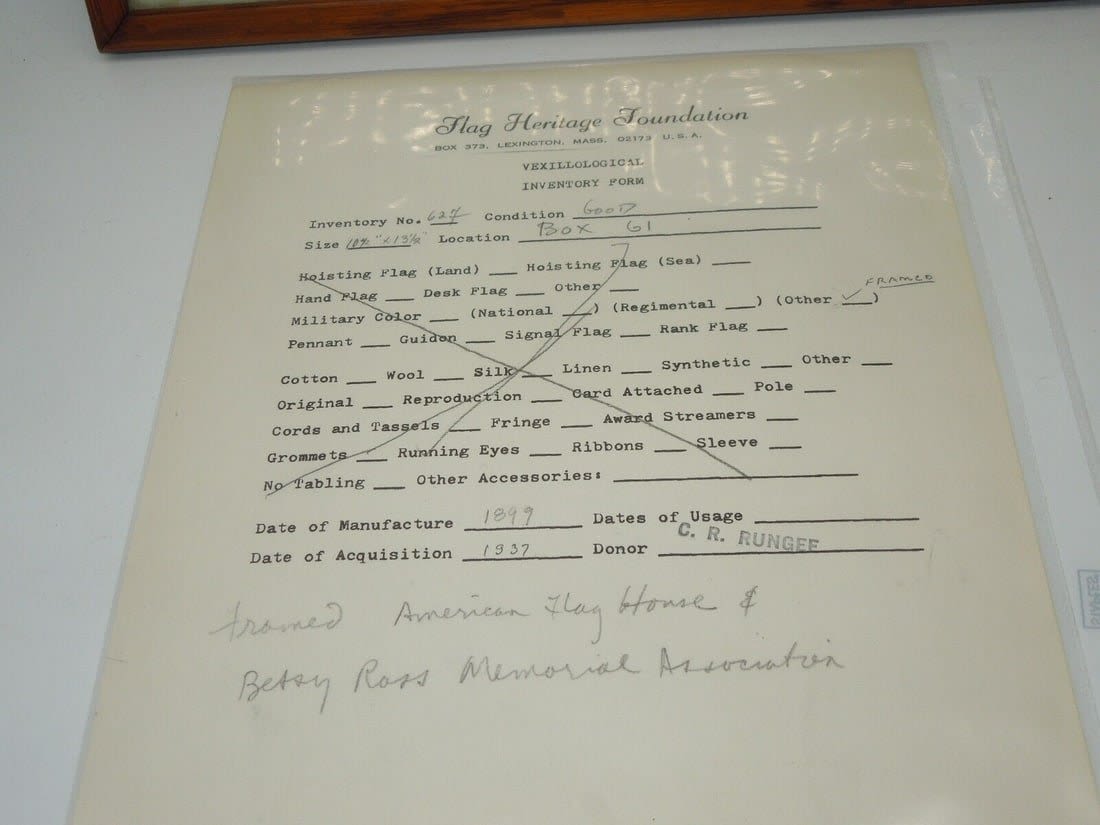 Flag Heritage Foundation
BOX 373, LEXINGTON, MASS. 02173 U.S.A.
VEXILLOLOGICAL
INVENTORY FORM
Inventory No. 627 Condition GOOD
Size 10¾" x 13½" Location BOX 61
Hoisting Flag (Land) ___ Hoisting Flag (Sea) ___
Hand Flag ___ Desk Flag ___ Other ___
FRAMED
Military Color ___ (National ___) (Regimental ___) (Other ✓)
Pennant ___ Guidon ___ Signal Flag ___ Rank Flag ___
Cotton ___ Wool ___ Silk ___ Linen ___ Synthetic ___ Other ___
Original ___ Reproduction ___ Card Attached ___ Pole ___
Cords and Tassels ___ Fringe ___ Award Streamers ___
Grommets ___ Running Eyes ___ Ribbons ___ Sleeve ___
No Tabling ___ Other Accessories: ___
Date of Manufacture 1899 Dates of Usage ___
Date of Acquisition 1937 Donor C. R. RUNGEE
framed American Flag House &
Betsy Ross Memorial Association